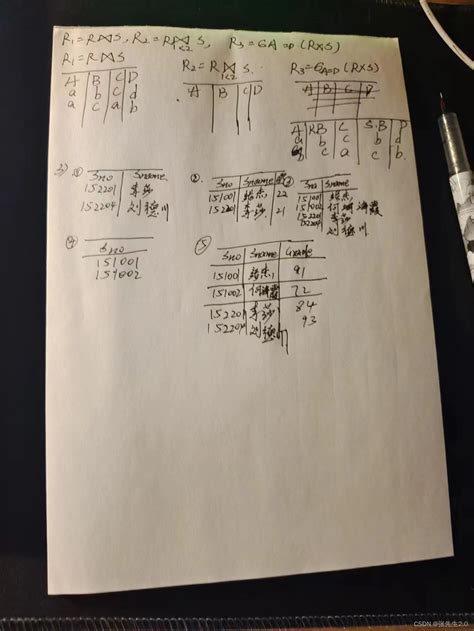 R₁=R⋈S, R₂=R⋈S, R₃=σA=D(R×S)
1<2
R₁=R⋈S
R₂=R⋈S.
1<2
R₃=σA=D(R×S)
A B C D
a b c d
b c a b
A B C D
A B C D
A RB C S.B D
a b c b d
b c a c b.
3) ①
Sno Sname
152201 李莎
152204 刘德川
②.
Sno Sname
151001 22
152201 李莎 21
③
Sno Sname
151001
151002
152201 李莎
152204 刘德川
④
Sno
151001
151002
⑤
Sno Sname Grade
15100 91
151002 72
152201 李莎 84
152204 刘德川 93
CSDN @张先生2.0